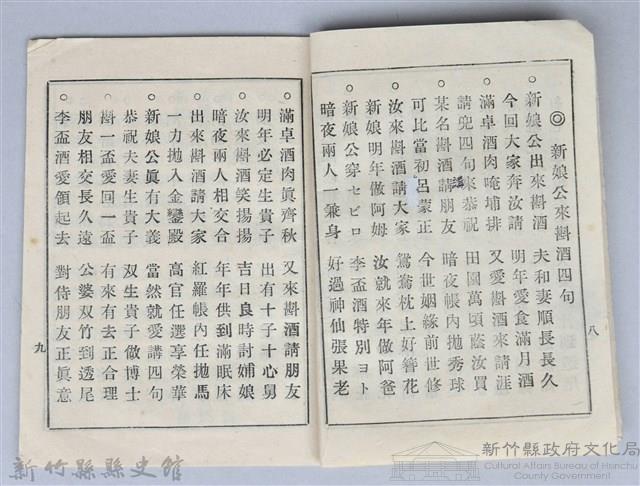 ◎ 新娘公來斟酒四句
○ 新娘公出來斟酒 夫和妻順長長久
今回大家奔汝請 明年愛食滿月酒
○ 滿卓酒肉唵埔排 又愛斟酒來請涯
請兜四句來恭祝 田園萬頃蔭汝買
○ 某名斟酒請朋友 暗夜帳內拋秀球
可比當初呂蒙正 今世姻緣前世修
○ 汝來斟酒請大家 鴛鴦枕上好簪花
新娘明年做阿姆 汝就來年做阿爸
○ 新娘公穿セビロ 李盃酒特別ヨト
暗夜兩人一乘身 好過神仙張果老
八
○ 滿卓酒肉眞齊秋 又來斟酒請朋友
明年必定生貴子 出有十子十心舅
○ 汝來斟酒笑揚揚 吉日良時討娘
暗夜兩人相交合 年年供到滿眠床
○ 出來斟酒請大家 紅羅帳內任拋馬
一力拋入金鑾殿 高官任選享榮華
○ 新娘公眞有大義 當然就愛講四句
恭祝夫妻生貴子 双生貴子做博士
○ 斟一盃愛回一盃 有來有去正合理
朋友相交長久遠 公婆双竹到透尾
○ 李盃酒愛領起去 對侍朋友正眞意
九
新竹縣縣史館
新竹縣政府文化局
Cultural Affairs Bureau of Hsinchu
County Government